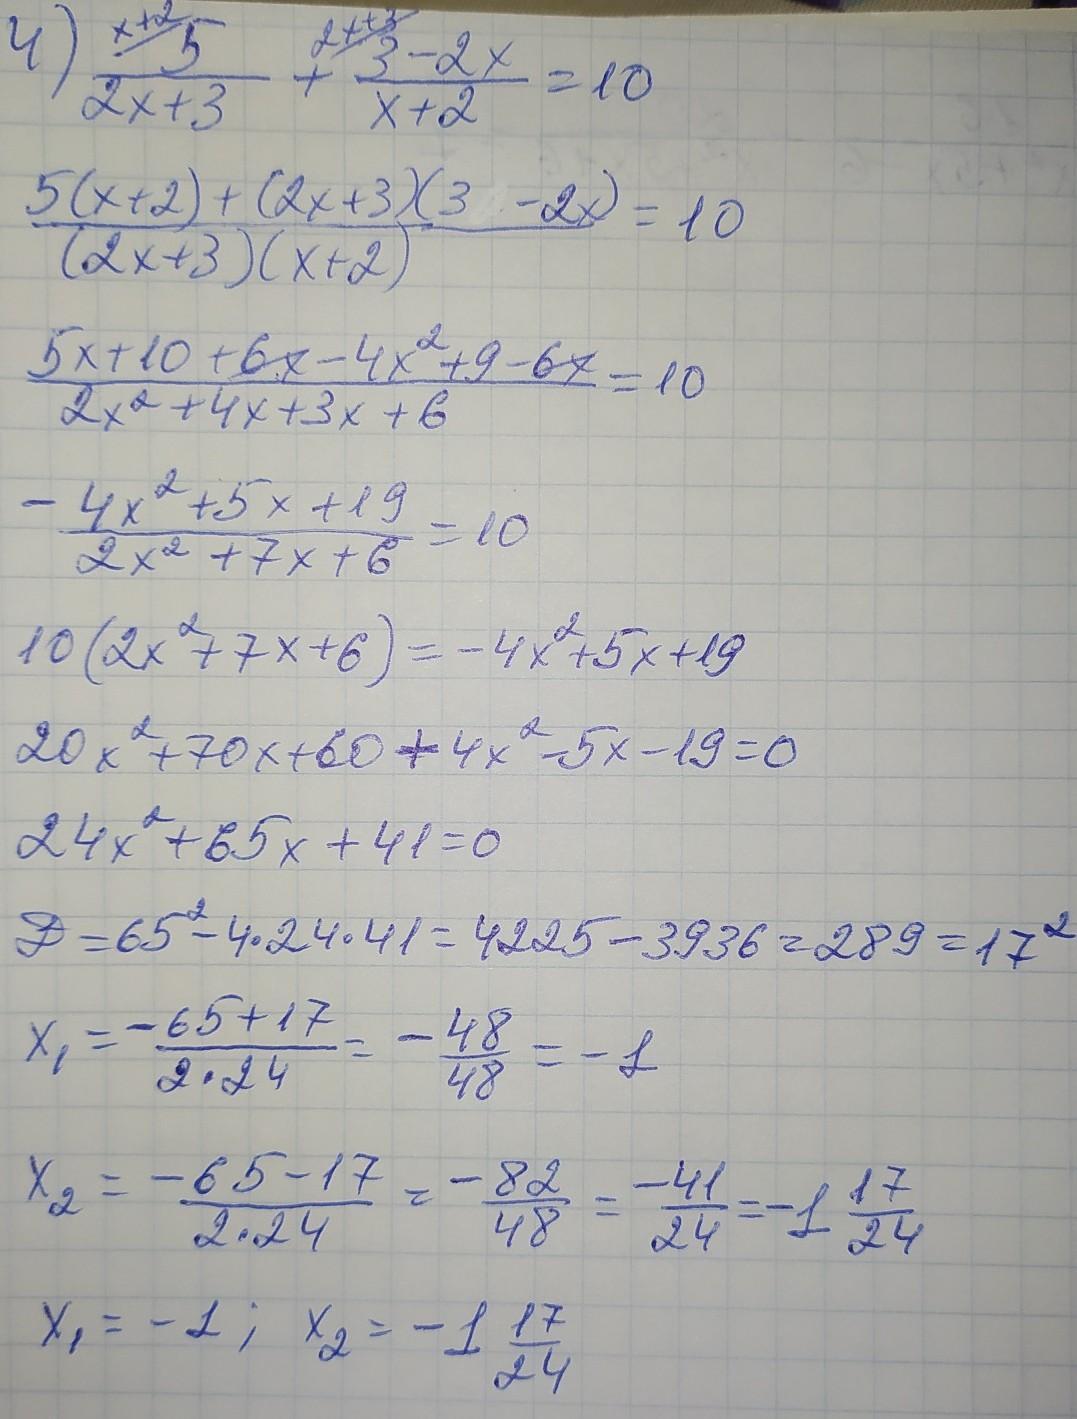 4) (x+2) 5/(2x+3) + (2x+3) (3-2x)/(x+2) = 10
(5(x+2)+(2x+3)(3 -2x))/((2x+3)(x+2)) = 10
(5x+10+6x-4x²+9-6x)/(2x²+4x+3x+6) = 10
(-4x²+5x+19)/(2x²+7x+6) = 10
10(2x²+7x+6)=-4x²+5x+19
20x²+70x+60+4x²-5x-19=0
24x²+65x+41=0
D=65²-4·24·41=4225-3936=289=17²
x₁=(-65+17)/(2·24)=-48/48=-1
x₂=(-65-17)/(2·24)=-82/48=-41/24=-1 17/24
x₁=-1; x₂=-1 17/24